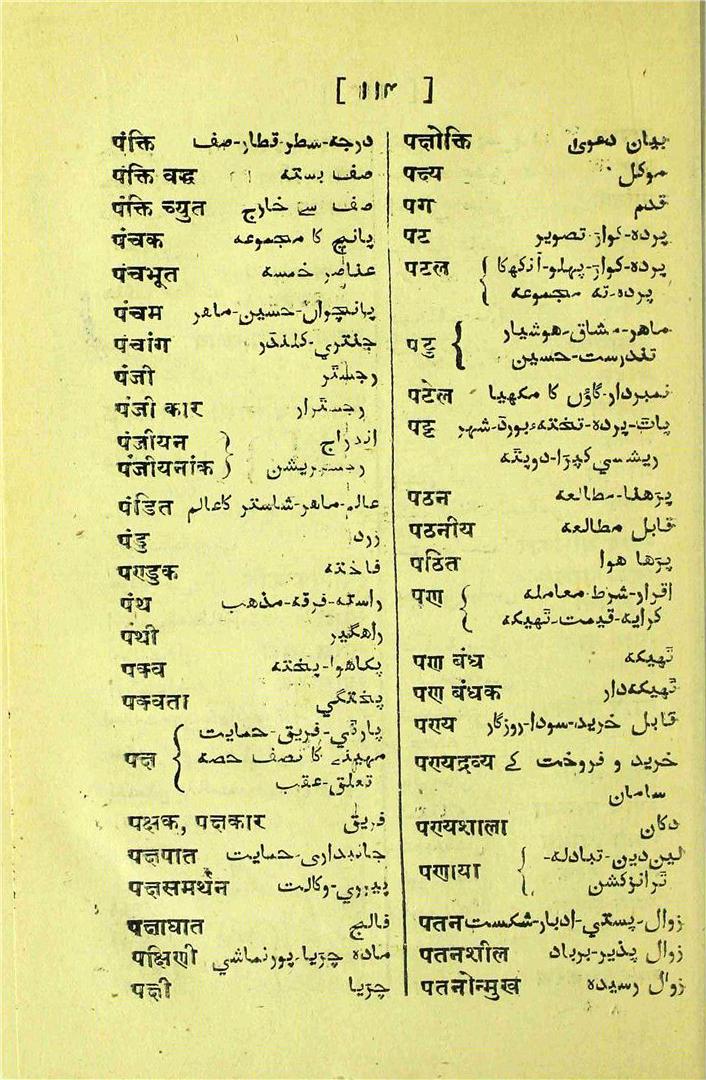 [ ۱۱۳ ]
पंक्ति درجہ-سطر-قطار-صف
पंक्ति बद्ध صف بستہ
पंक्ति च्युत صف سے خارج
पंचक پانچ کا مجموعہ
पंचभूत عناصر خمسہ
पंचम پانچواں-حسین-ماھر
पंचांग جنتری-کلنڈر
पंजी رجسٹر
पंजी कार رجسٹرار
पंजीयन اندراج
पंजीयनांक رجسٹریشن
पंडित عالم-ماھر-شاستر کاعالم
पंडु زرد
पण्डुक فاختہ
पंथ راستہ-فرقہ-مذھب
पंथी راھگیر
पक्व پکاھوا-پختہ
पक्वता پختگی
पक्ष پارٹی-فریق-حمایت
مہینے کا نصف حصہ
تعلق-عقب
पक्षक, पक्षकार فریق
पक्षपात جانبداری-حمایت
पक्षसमर्थन پیروی-وکالت
पक्षाघात فالج
पक्षिणी مادہ چڑیا-پورنماشی
पक्षी چڑیا
पक्षोक्ति بیان دعوی
पक्ष्य موکل
पग قدم
पट پردہ-کواڑ-تصویر
पटल پردہ-کواڑ-پہلو-آنکھکا
پردہ-تہ مجموعہ
पटु ماھر-مشاق-ھوشیار
تندرست-حسین
पटेल نمبردار-گاؤں کا مکھیا
पट्ट پاٹ-پردہ-تختہ-بورڈ-شہر
ریشمی کپڑا-دوپٹہ
पठन پڑھنا-مطالعہ
पठनीय قابل مطالعہ
पठित پڑھا ھوا
पण اقرار-شرط-معاملہ
کرایہ-قیمت-ٹھیکہ
पण बंध ٹھیکہ
पण बंधक ٹھیکہدار
पण्य قابل خرید-سودا-روزگار
पण्यद्रव्य خرید و فروخت کے
سامان
पण्यशाला دکان
पणाया لین‌دین-تبادلہ-
ٹرانزکشن
पतन زوال-پستی-ادبار-شکست
पतनशील زوال پذیر-برباد
पतनोन्मुख زوال رسیدہ